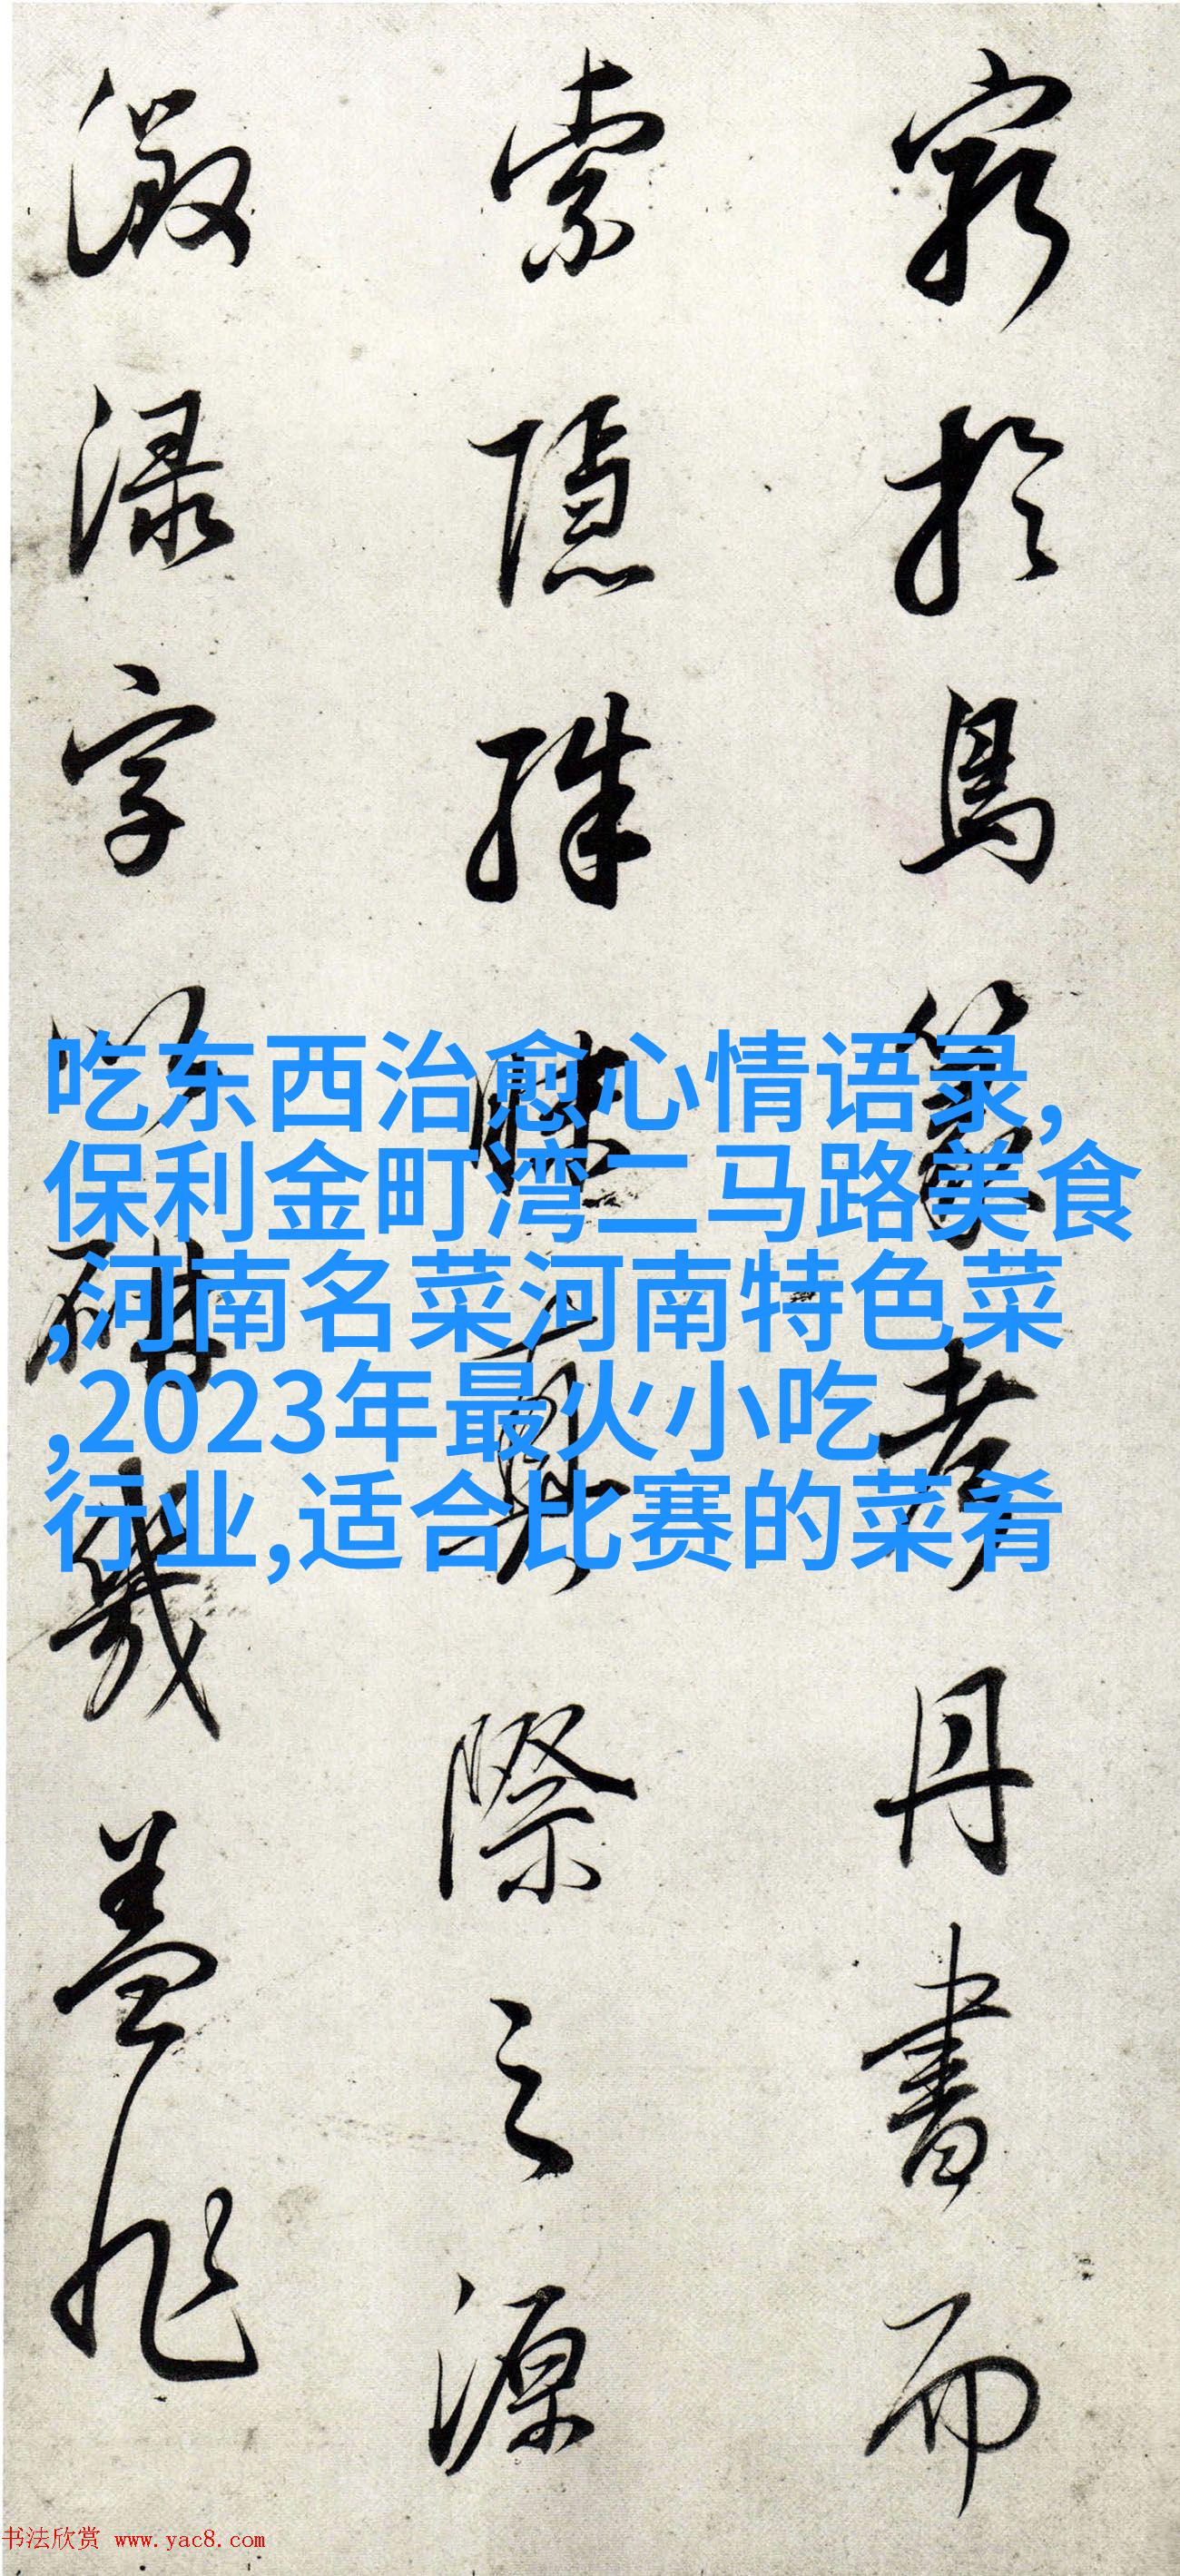 窮於鳥篆考丹書而
索隱殊昧真際之源
渌字以研幾蓋非
吃东西治愈心情语录,
保利金町湾二马路美食
,河南名菜河南特色菜
,2023年最火小吃
行业,适合比赛的菜肴
书法欣赏 www.yac8.com